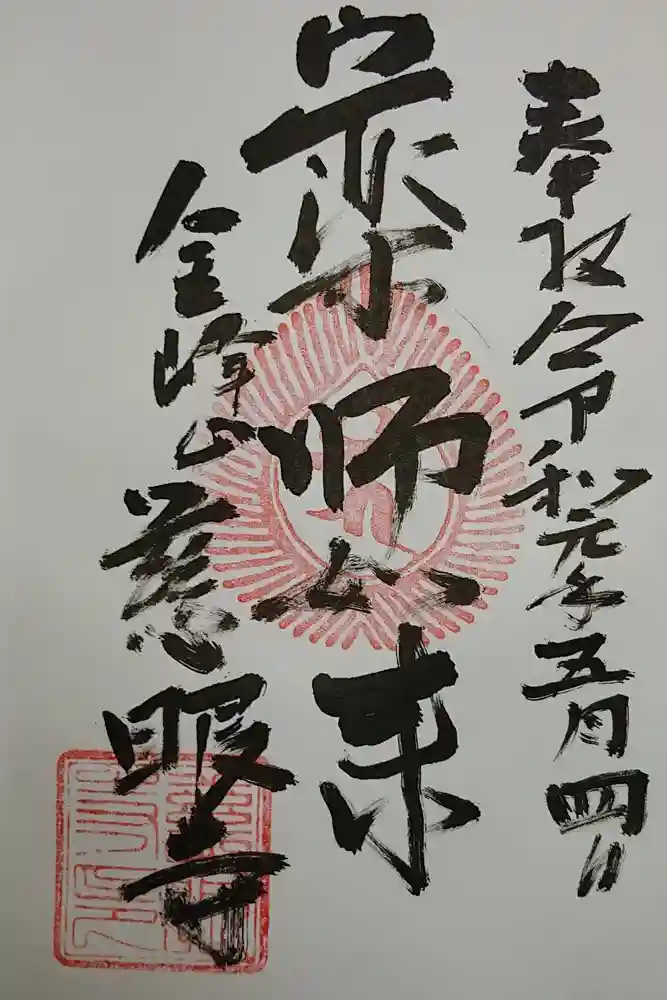 奉拝令和元年五月四日
薬師如来
金峰山慈眼寺